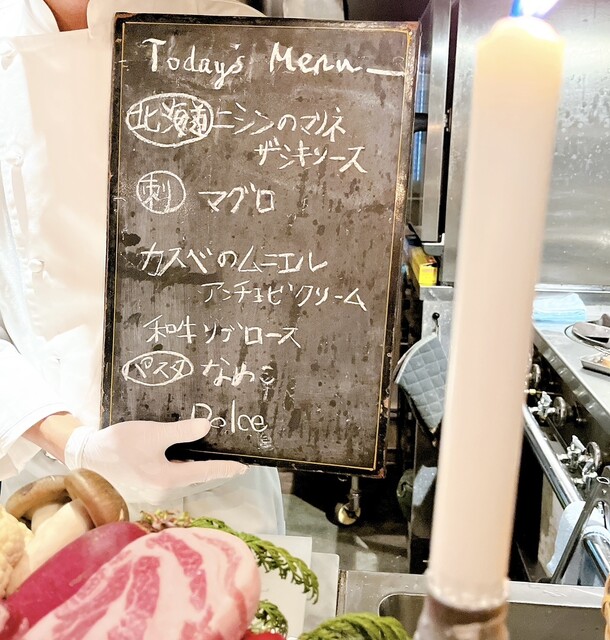 Today's Menu
北海道 ニシンのマリネ
ザシキソース
刺 マグロ
カスベのムニエル
アンチョビクリーム
和牛リブロース
パスタ なめこ
Dolce